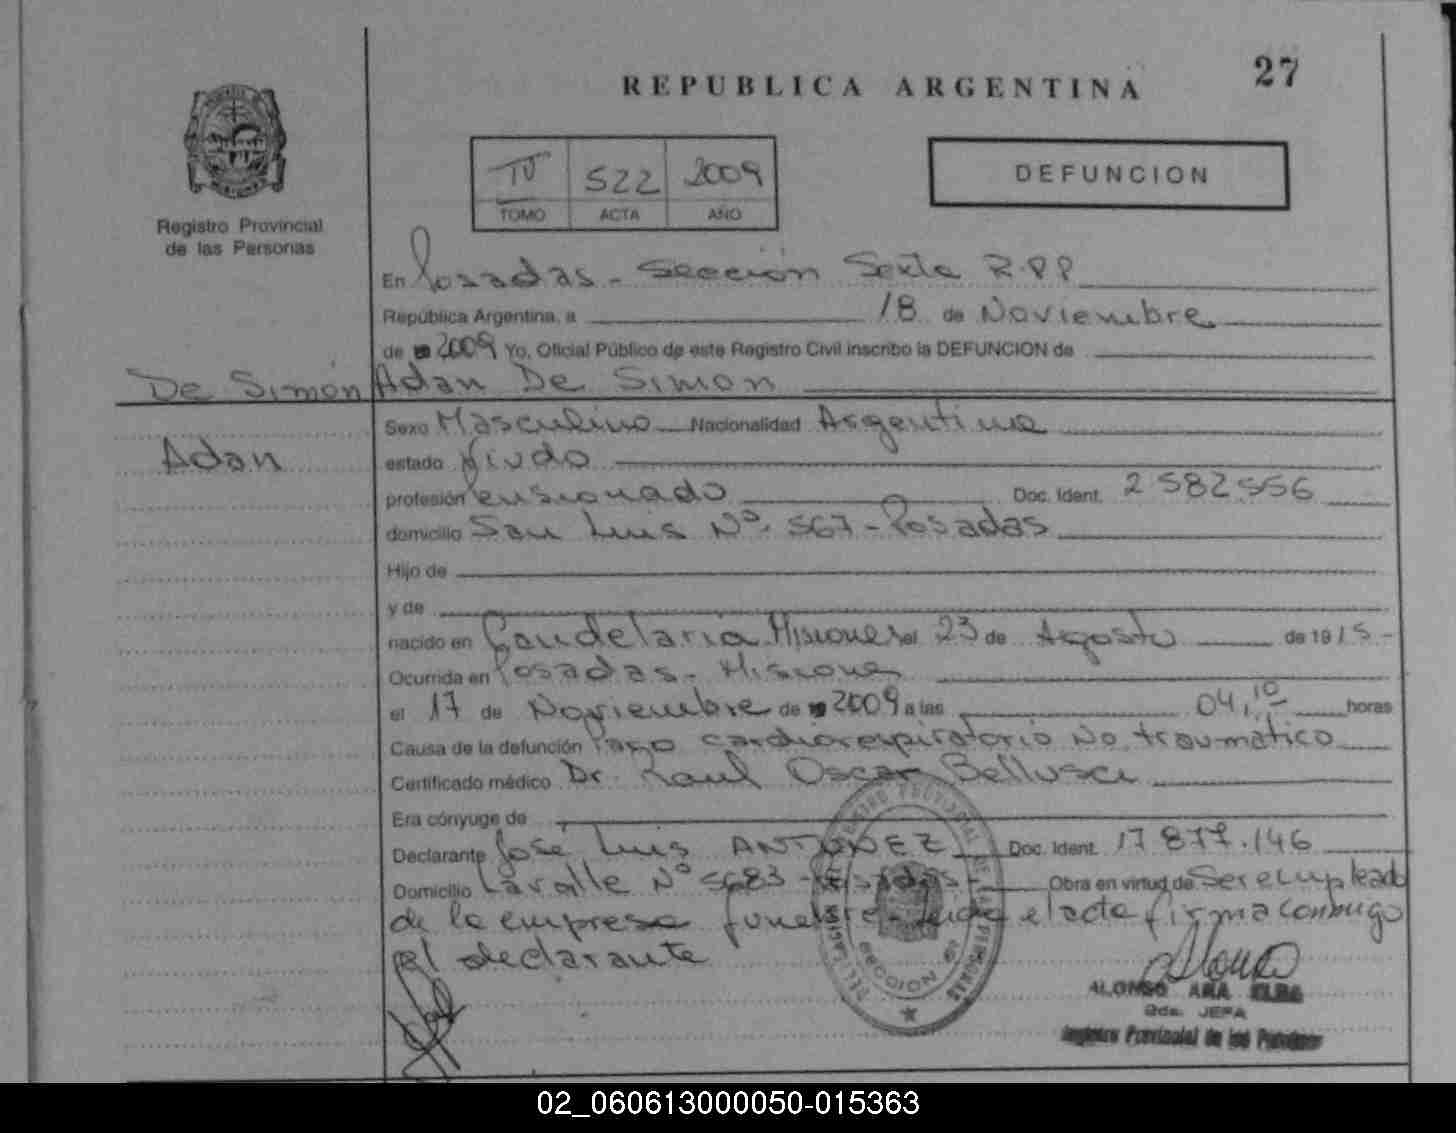 27
REPUBLICA ARGENTINA
DEFUNCION
IV 522 2009
TOMO ACTA AÑO
Registro Provincial
de las Personas
En Posadas - Sección Sexta R.P.P
República Argentina, a 18 de Noviembre
de 2009 Yo, Oficial Público de este Registro Civil inscribo la DEFUNCION de
De Simón Adan De Simon
Adan
Sexo Masculino Nacionalidad Argentina
estado Viudo
profesión Pensionado Doc. Ident. 2582556
domicilio San Luis Nº 567 - Posadas
Hijo de
y de
nacido en Candelaria Misiones el 23 de Agosto de 1915 -
Ocurrida en Posadas - Misiones
el 17 de Noviembre de 2009 a las 04,10 horas
Causa de la defunción Paro cardiorespiratorio No traumático
Certificado médico Dr. Raul Oscar Bellusci
Era cónyuge de
Declarante José Luis ANTUNEZ Doc. Ident. 17877.146
Domicilio Lavalle Nº 5683 - Posadas - Obra en virtud de Ser empleado
de la empresa funebre - leida el acta firma conmigo
el declarante
REGISTRO PROVINCIAL DE LAS PERSONAS
SECCION 6ª
ALONSO ANA ELBA
Gda. JEFA
Registro Provincial de las Personas
02_060613000050-015363